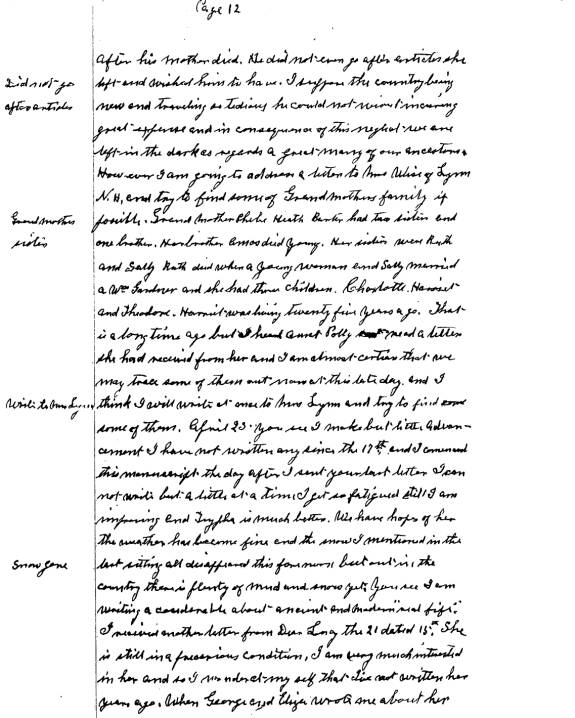 Page 12
After his mother died. He did not even go after articles she
Did not go
left and wished him to have. I suppose the country being
after articles
new and traveling so tedious he could not without incuring
great expense and in consequence of this neglect we are
left in the dark as regards a great many of our ancestors.
However I am going to address a letter to Mrs of Lyme
N.H. and try to find some of Grandmothers family if
Grand mothers
possible. Grand Mother Phebe Heath Baxter had two sisters and
sisters
one brother. Her brother Amos died young. Her sisters were Ruth
and Sally Ruth died when a young woman and Sally married
a Wm Gardner and she had three children. Charlotte. Harriet
and Theodore. Harriet was living twenty five years ago. That
is a long time ago but I heard aunt Polly read a letter
she had received from her and I am almost certain that we
may trace some of them out now at this late day. and I
Write to Mrs
think I will write at once to Mrs Lyme and try to find
some of them. April 23 you see I make but little advan-
cement I have not written any since the 17th and I commenced
this manuscript the day after I sent your last letter I can
not write but a little at a time I get so fatigued still I am
improving and is much better. We have hopes of her
the weather has become fine and the snow I mentioned in the
Snow gone
last sitting all disappeared this forenoon but out in the
country there is plenty of mud and snow yet. You see I am
writing a considerable about ancient and modern
I received another letter from Dear the 21 dated 15th. She
is still in a precarious condition, I am very much interested
in her and so I wonder at my self that I've not written her
years ago. When George and Eliza wrote me about her